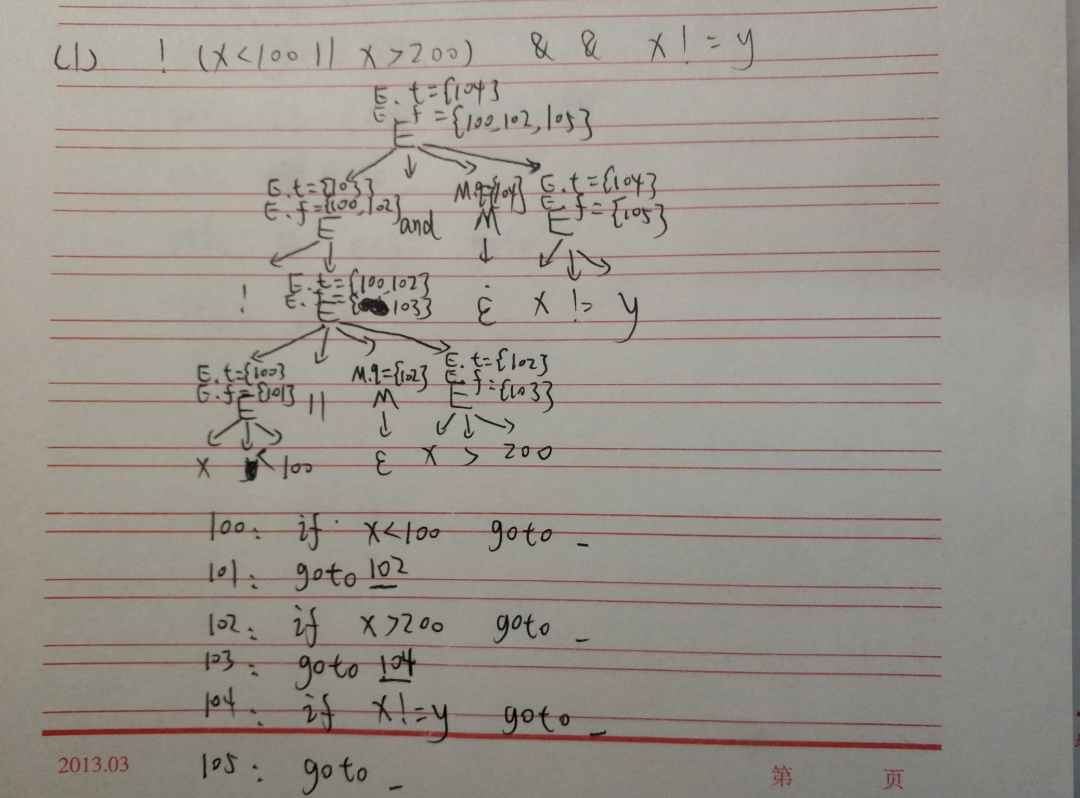 (1) ! (x<100 || x>200) && x!=y
E.t={104}
E.f={100,102,105}
E
E.t={103} M.q={104} E.t={104}
E.f={100,102} E.f={105}
E and M E
E.t={100,102}
! E.f={103} ε x != y
E
E.t={100} M.q={102} E.t={102}
E.f={101} E.f={103}
E || M E
x < 100 ε x > 200
100: if x<100 goto _
101: goto 102
102: if x>200 goto _
103: goto 104
104: if x!=y goto _
105: goto _
2013.03 第 页